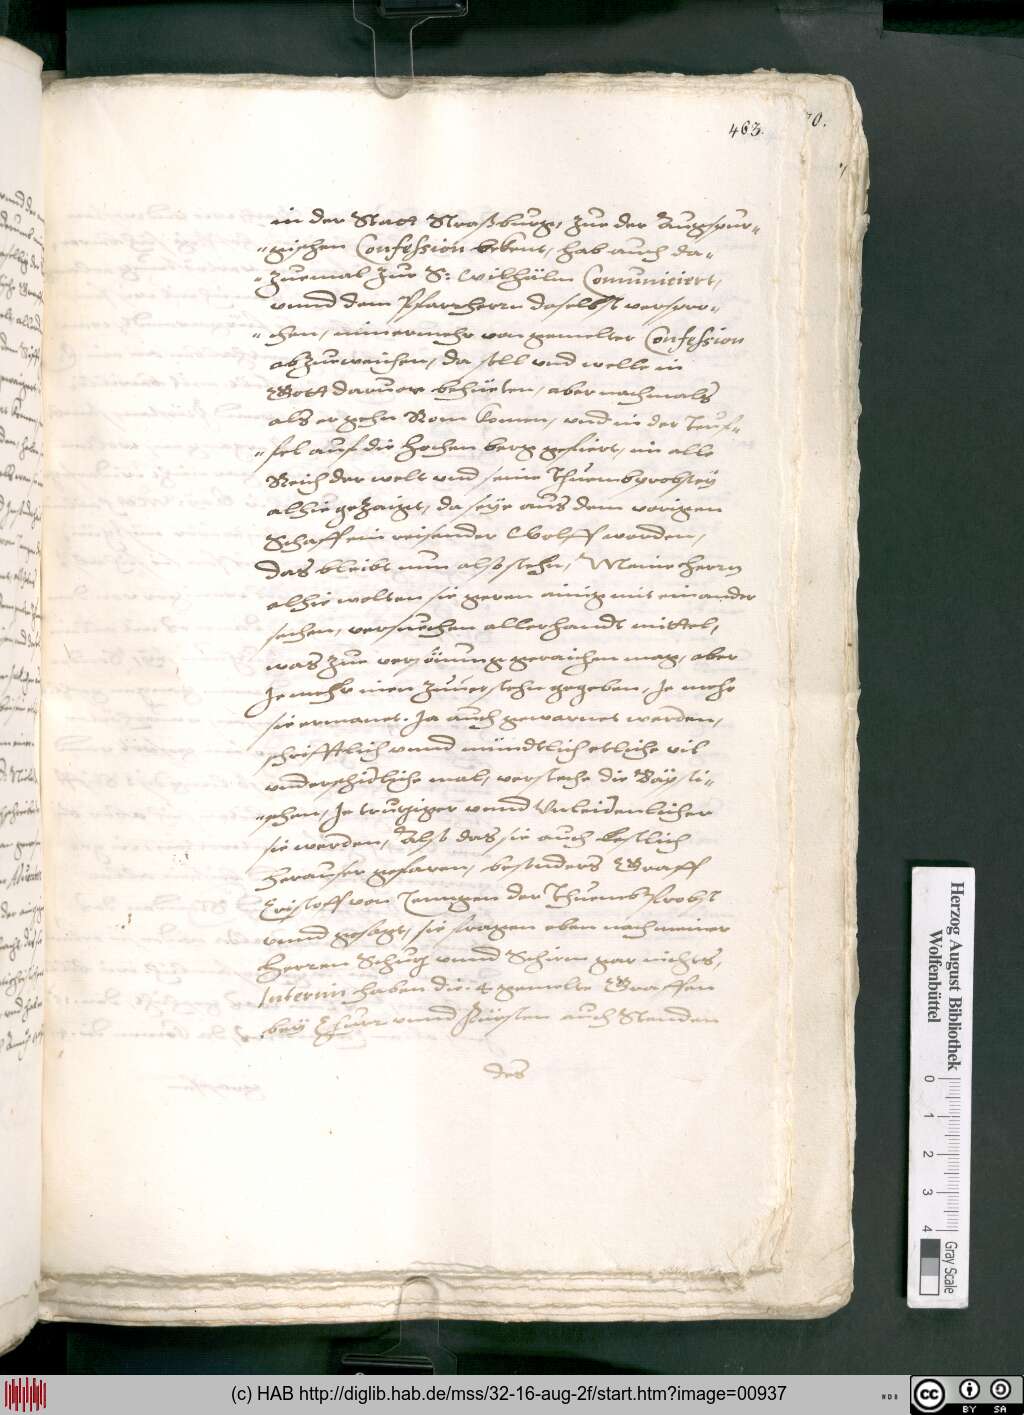 463.
70.
in der Statt Straßburg, zue der Augspur-
-gischen Confession bekent, hab auch da-
-zuemal zue S: Wilhälm Comuniciert,
vnnd dem Pfarrherrn daselbst verspro-
-chen, nimermehr von gemelter Confession
abzueweichen, da soll vnd welle in
Gott daruor behüeten, aber nachmals
als er gehn Rom komen, vnd in der Teuf-
-fel auf die hochen berg gefiert, im alle
Reich der welt vnd seine Thuembprobstey
alhie gezaigt, da seye aus dem vorigen
Schaff ein reisender Wolff worden,
das bleibt nun also stehn, Meine herrn
alhie wolten sie geren ainig mit einander
sechen, versuechen allerhandt mittel,
was zue versönung geraichen mag, aber
Je mehr inen zuuerstehn gegeben, Je mehr
sie ermanet. Ja auch gewarnet werden,
schrifftlich vnnd mündtlich etliche vil
vnderschidliche mal, verstehe die Bäpsti-
-schen, Je truziger vnnd Vnleidenlicher
sie werden, Also das sie auch lestlich
herausser gefaren, besonders Graff
Cristoff von der Thuembprobst
vnnd gesagt, sie fragen eben nach meiner
Herren Schuz vnnd Schirm gar nichts,
Interim haben die 4 gemelte Graffen
bey Churr vnnd Fürsten auch Stenden
des
Herzog August Bibliothek
Wolfenbüttel
0 1 2 3 4
Gray Scale
(c) HAB http://diglib.hab.de/mss/32-16-aug-2f/start.htm?image=00937
cc BY SA